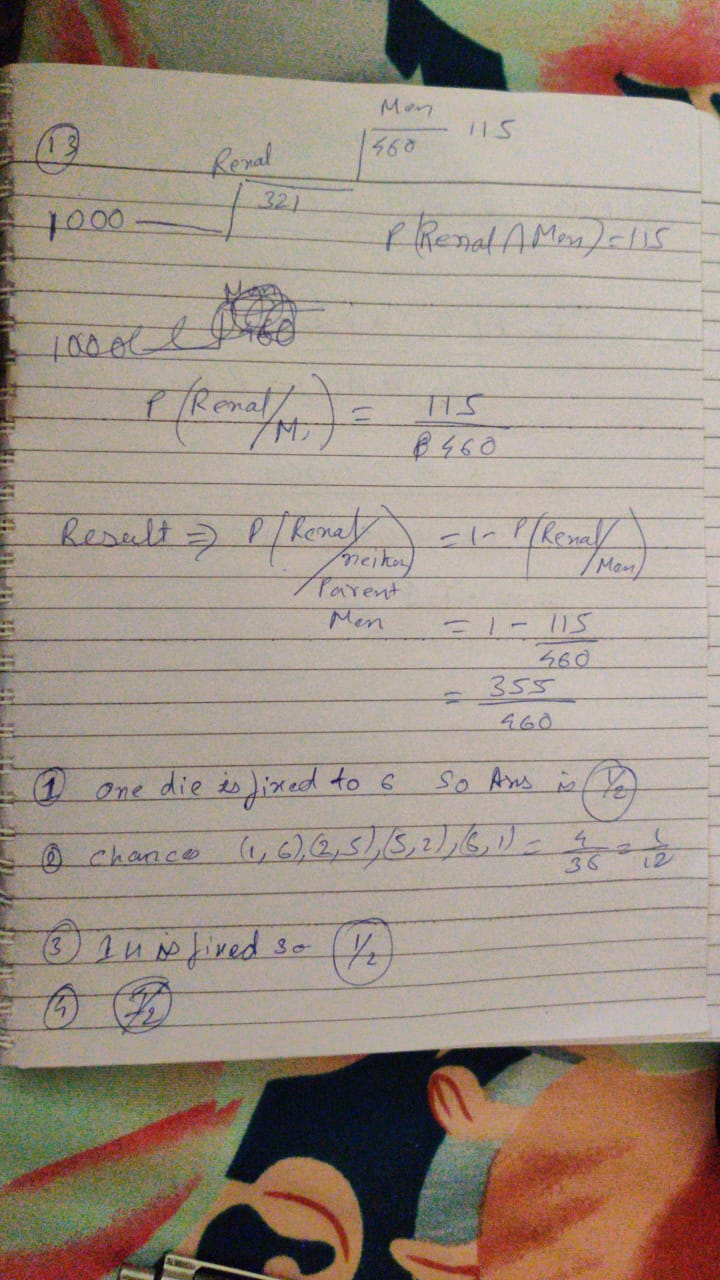 13
Men
460 115
Renal
321
1000
P(Renal ∩ Men) = 115
1000
P(Renal/M.) = 115/460
Result ⇒ P(Renal/neither Parent Men) = 1 - P(Renal/Men)
= 1 - 115/460
= 355/460
① one die is fixed to 6 so Ans is 1/2
② chances (1,6),(2,5),(5,2),(6,1) = 4/36 = 1/12
③ is fixed so 1/2
④